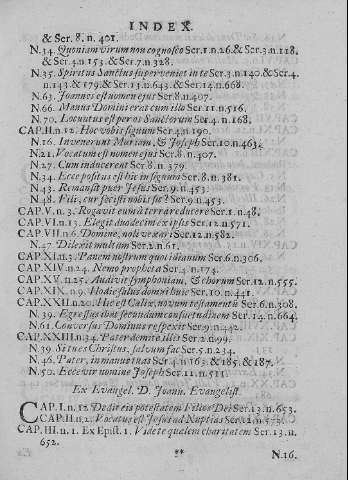 INDEX.
& Ser. 8. n. 401.
N. 34. Quoniam virum non cognosco Ser. 1. n 26. & Ser. 3. n. 118.
& Ser. 4 n. 153. & Ser. 7. n. 328.
N. 35. Spiritus Sanctus superveniet in te Ser. 3. n. 140. & Ser. 4.
n. 143. & 179. & Ser. 13. n. 643. & Ser. 14. n. 668.
N. 63. Joannes est nomen ejus Ser. 8. n. 407.
N. 66. Manus Domini erat cum illo Ser. 11. n. 516.
N. 70. Locutus est per os Sanctorum Ser. 4. n. 168.
CAP. II. n. 12. Hoc vobis signum Ser. 4. n. 190.
N. 16. Invenerunt Mariam, & Joseph Ser. 10. n. 463.
N. 21. Vocatum est nomen ejus Ser. 8. n. 407.
N. 27. Cum inducerent Ser. 8. n. 379.
N. 34. Ecce positus est hic in signum Ser. 8. n. 381.
N. 43. Remansit puer Jesus Ser. 9. n. 453.
N. 48. Fili, cur fecisti nobis sic? Ser. 9. n. 453.
CAP. V. n. 3. Rogavit eum à terra reducere Ser. 1. n. 48.
CAP. VI. n. 13. Elegit duodecim ex ipsis Ser. 12. n. 571.
CAP. VII. n. 6. Domine, noli vexari Ser. 12. n. 582.
N. 47. Dilexit multum Ser. 2. n. 61.
CAP. XI. n. 3. Panem nostrum quotidianum Ser. 6. n. 306.
CAP. XIV. n. 24. Nemo propheta Ser. 4. n. 174.
CAP. XV. n. 25. Audivit symphoniam, & chorum Ser. 12. n. 555.
CAP. XIX. n. 9. Hodie salus domui huic Ser. 10. n. 441.
CAP. XXII. n. 20. Hic est Calix, novum testamentū Ser. 6. n. 308.
N. 39. Egressus ibat secundum consuetudinem Ser. 14. n. 664.
N. 61. Conversus Dominus respexit Ser. 9. n. 442.
CAP. XXIII. n. 34. Pater demitte illis Ser. 2. n. 99.
N. 39. Si tu es Christus, salvum fac Ser. 5. n. 234.
N. 46. Pater, in manus tuas Ser. 4. n. 163. & 185. & 187.
N. 50. Ecce vir nomine Joseph Ser. 11. n. 511.
Ex Evangel. D. Joann. Evangelist.
CAP. I. n. 12. Dedit eis potestatem Filios Dei Ser. 13. n. 653.
CAP. II. n. 2. Vocatus est Jesus ad Nuptias Ser. 12. n. 573.
CAP. III. n. 1. Ex Epist. 1. Videte qualem charitatem Ser. 13. n.
652.
**
N. 16.